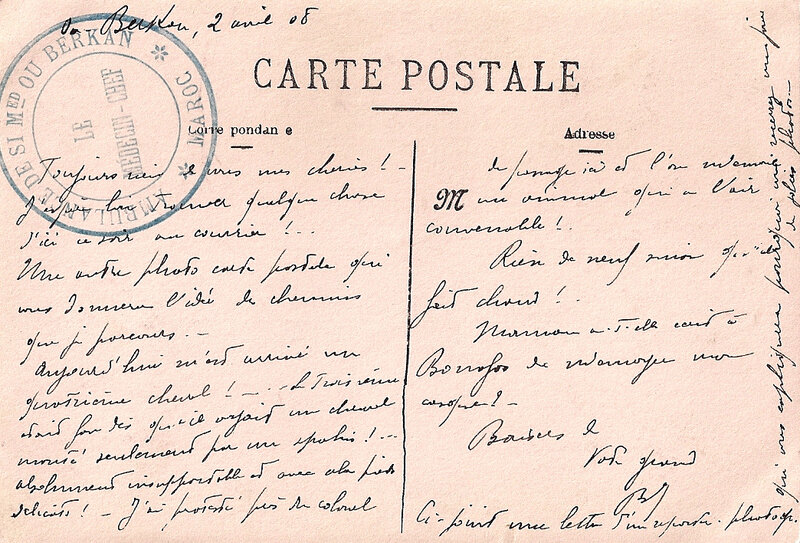 Berkan, 2 avril 08
AMBULANCE DE SI MED OU BERKAN
MAROC
LE
MÉDECIN-CHEF
CARTE POSTALE
Corre pondan e
Adresse
Toujours rien de vous mes chéries ! -
J'espère bien trouver quelque chose
d'ici ce soir au courrier ! ..
Une autre photo carte postale qui
vous donnera l'idée de chemins
que je parcours. -
Aujourd'hui m'est arrivé un
quatrième cheval ! - ... Le troisième
était fou dès qu'il voyait un cheval
monté seulement par un spahis ! ...
absolument insupportable et avec cela pieds
délicats ! - J'ai protesté près du colonel
de passage ici et l'on m'envoie
M
un animal qui a l'air
convenable ! .
Rien de neuf sinon qu'il
fait chaud ! .
Maman a-t-elle écrit à
de m'envoyer mon
casque ? -
Baisers de
Votre grand
Ci-joint une lettre d'un reporter-photogr.
qui vous expliquera pourquoi vous n'aurez
de plus photos. -